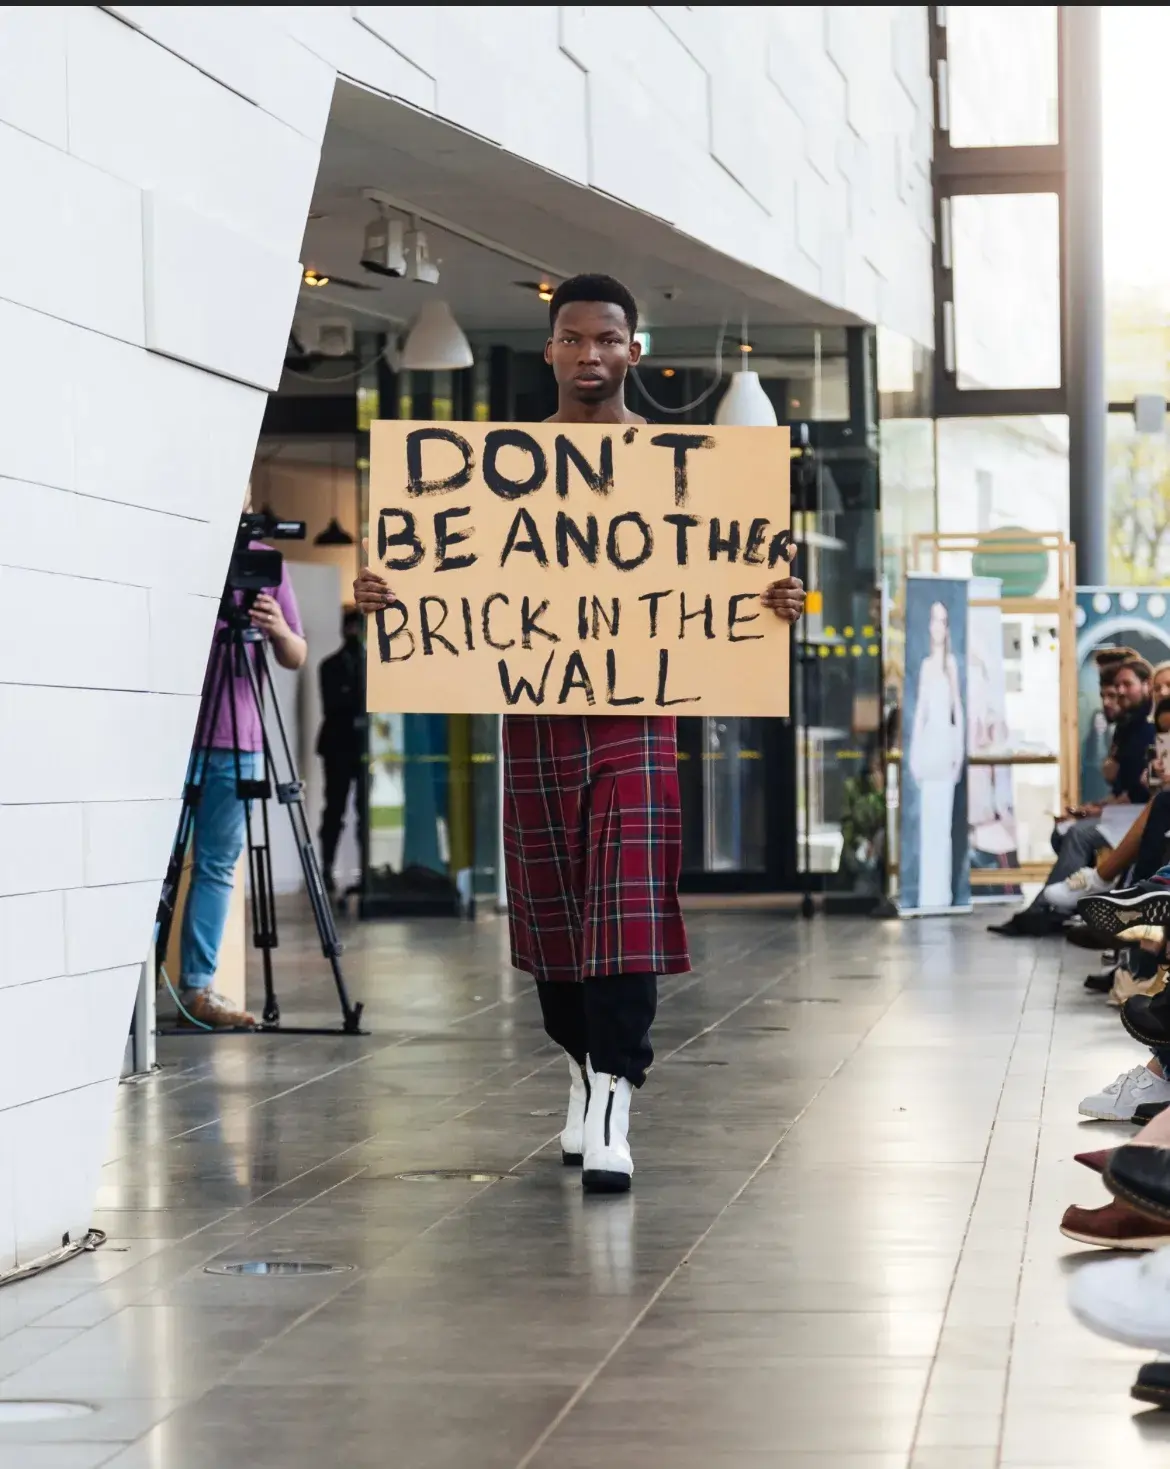 DON'T
BE ANOTHER
BRICK IN THE
WALL